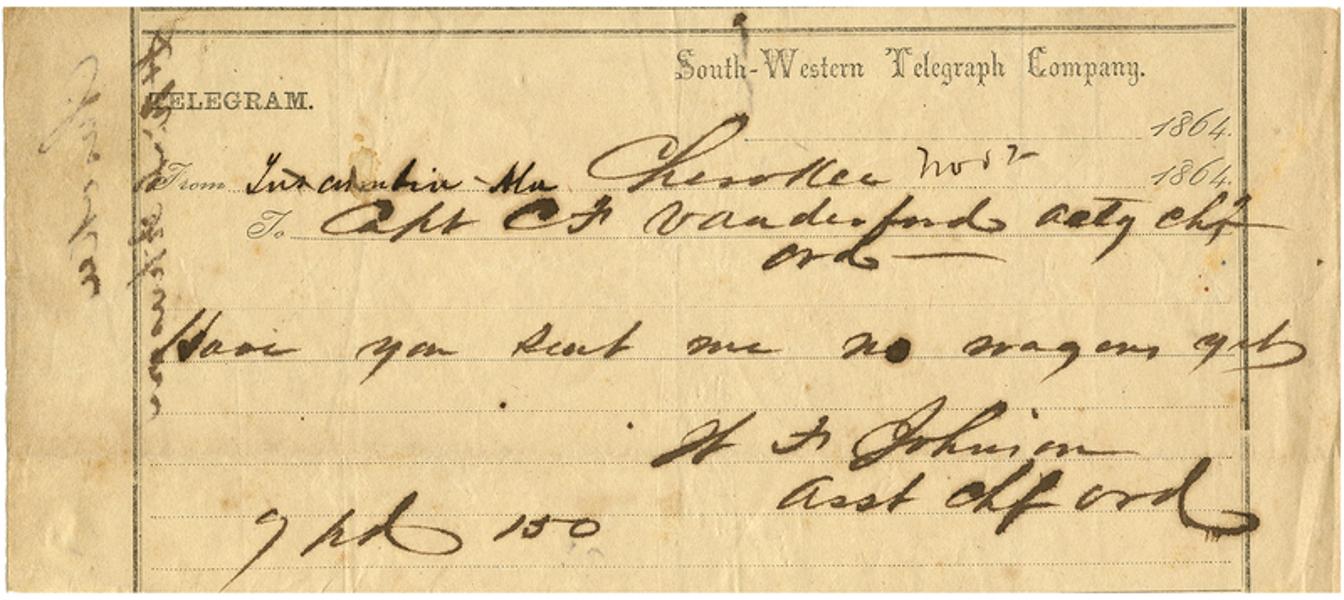 South-Western Telegraph Company.
TELEGRAM.
1864.
From Tuscumbia Ala Cherokee Nov 1864.
To Capt C F Vanderford actg chf
ord
Have you sent me no wagons yet
W F Johnson
asst chf ord
9 pd 150